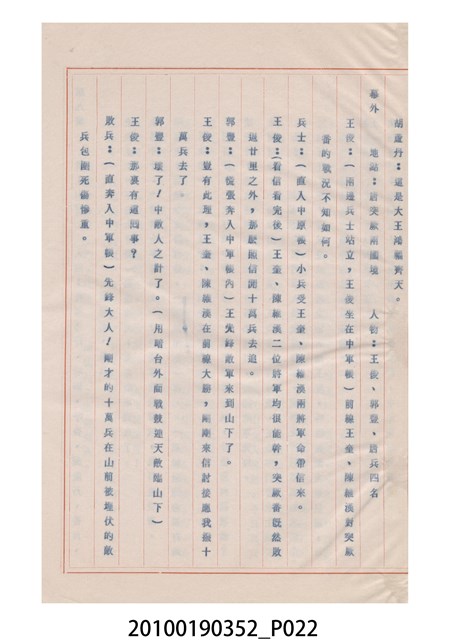 胡蘆丹：還是大王鴻福齊天。
幕外　地點：唐突厥兩國境　人物：王俊、郭豐、唐兵四名
王俊：（兩邊兵士站立，王俊坐在中軍帳）前線王奎、陳維漢討突厥
番的戰況不知如何。
兵士：（直入中原帳）小兵受王奎、陳維漢兩將軍命帶信來。
王俊：（看信看完後）王奎、陳維漢二位將軍均很能幹，突厥番既然敗
退廿里之外，那麼照信開十萬兵去追。
郭豐：（慌張奔入中軍帳內）王先鋒敵軍來到山下了。
王俊：豈有此理，王奎、陳維漢在前線大勝，剛剛來信討接應我撥十
萬兵去了。
郭豐：壞了！中敵人之計了。（用暗台外面戰鼓連天敵臨山下）
王俊：那裏有這回事？
敗兵：（直奔入中軍帳）先鋒大人！剛才的十萬兵在山前被埋伏的敵
兵包圍死傷慘重。
20100190352_P022